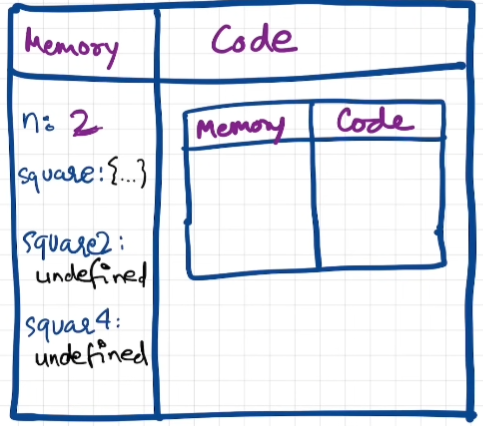 Memory
Code
n: 2
square: {...}
square2:
undefined
squar4:
undefined
Memory
Code